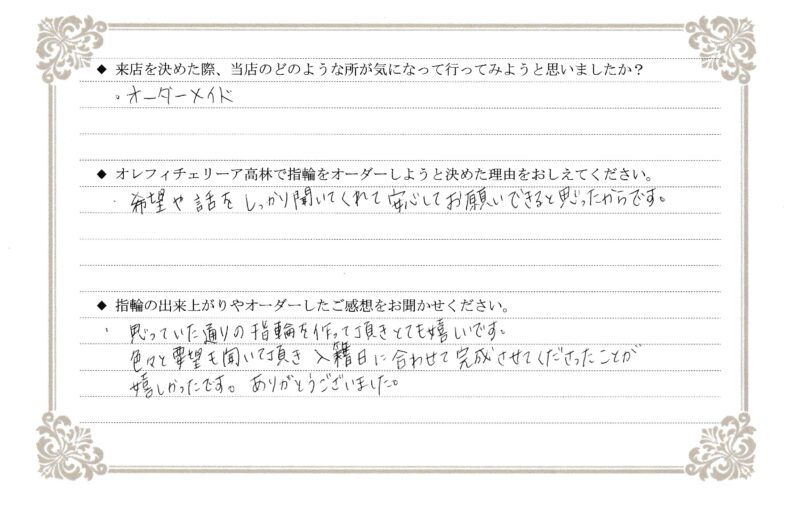 ◆ 来店を決めた際、当店のどのような所が気になって行ってみようと思いましたか？
。オーダーメイド
◆ オレフィチェリーア高林で指輪をオーダーしようと決めた理由をおしえてください。
・希望や話をしっかり聞いてくれて安心してお願いできると思ったからです。
◆ 指輪の出来上がりやオーダーしたご感想をお聞かせください。
・思っていた通りの指輪を作って頂きとても嬉しいです。
色々と要望も聞いて頂き入籍日に合わせて完成させてくださったことが
嬉しかったです。ありがとうございました。